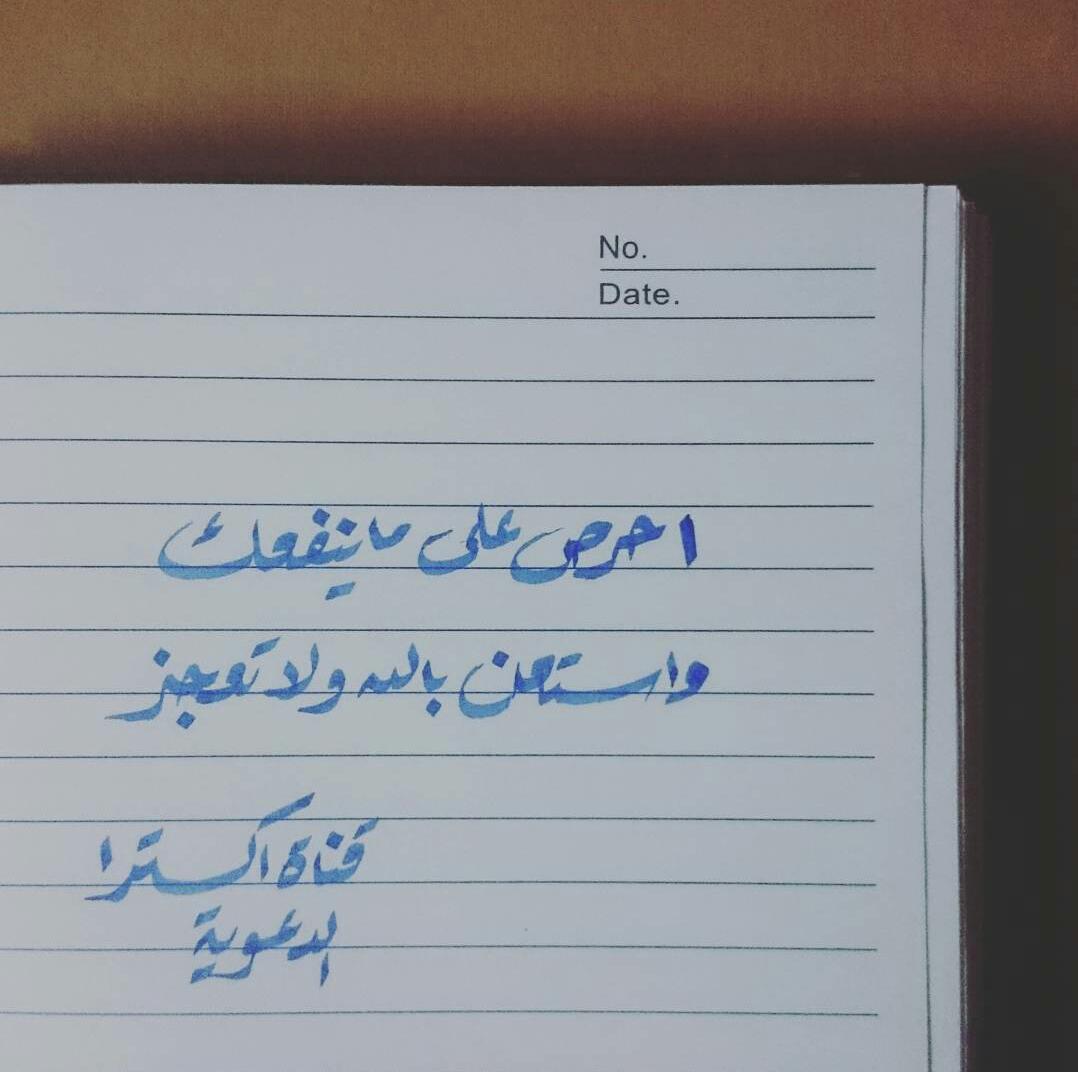 No.
Date.
احرص على ما ينفعك
واستعن بالله ولا تعجز
قناة اكسترا
الدعوية